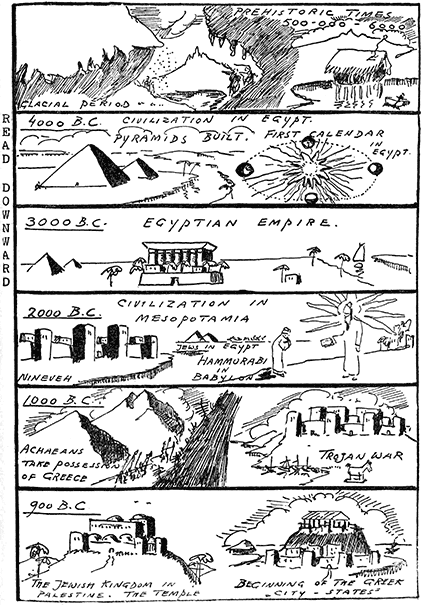 READ DOWNWARD
PREHISTORIC TIMES
500-000 - 6000
GLACIAL PERIOD
4000 B.C. CIVILIZATION IN EGYPT.
PYRAMIDS BUILT. FIRST CALENDAR
IN
EGYPT.
3000 B.C. EGYPTIAN EMPIRE.
2000 B.C. CIVILIZATION IN
MESOPOTAMIA
JEWS IN EGYPT
HAMMURABI
IN
BABYLON
NINEVEH
1000 B.C
ACHAEANS
TAKE POSSESSION
OF GREECE
TROJAN WAR
900 B.C
THE JEWISH KINGDOM IN
PALESTINE. THE TEMPLE
BEGINNING OF THE GREEK
-CITY-STATES